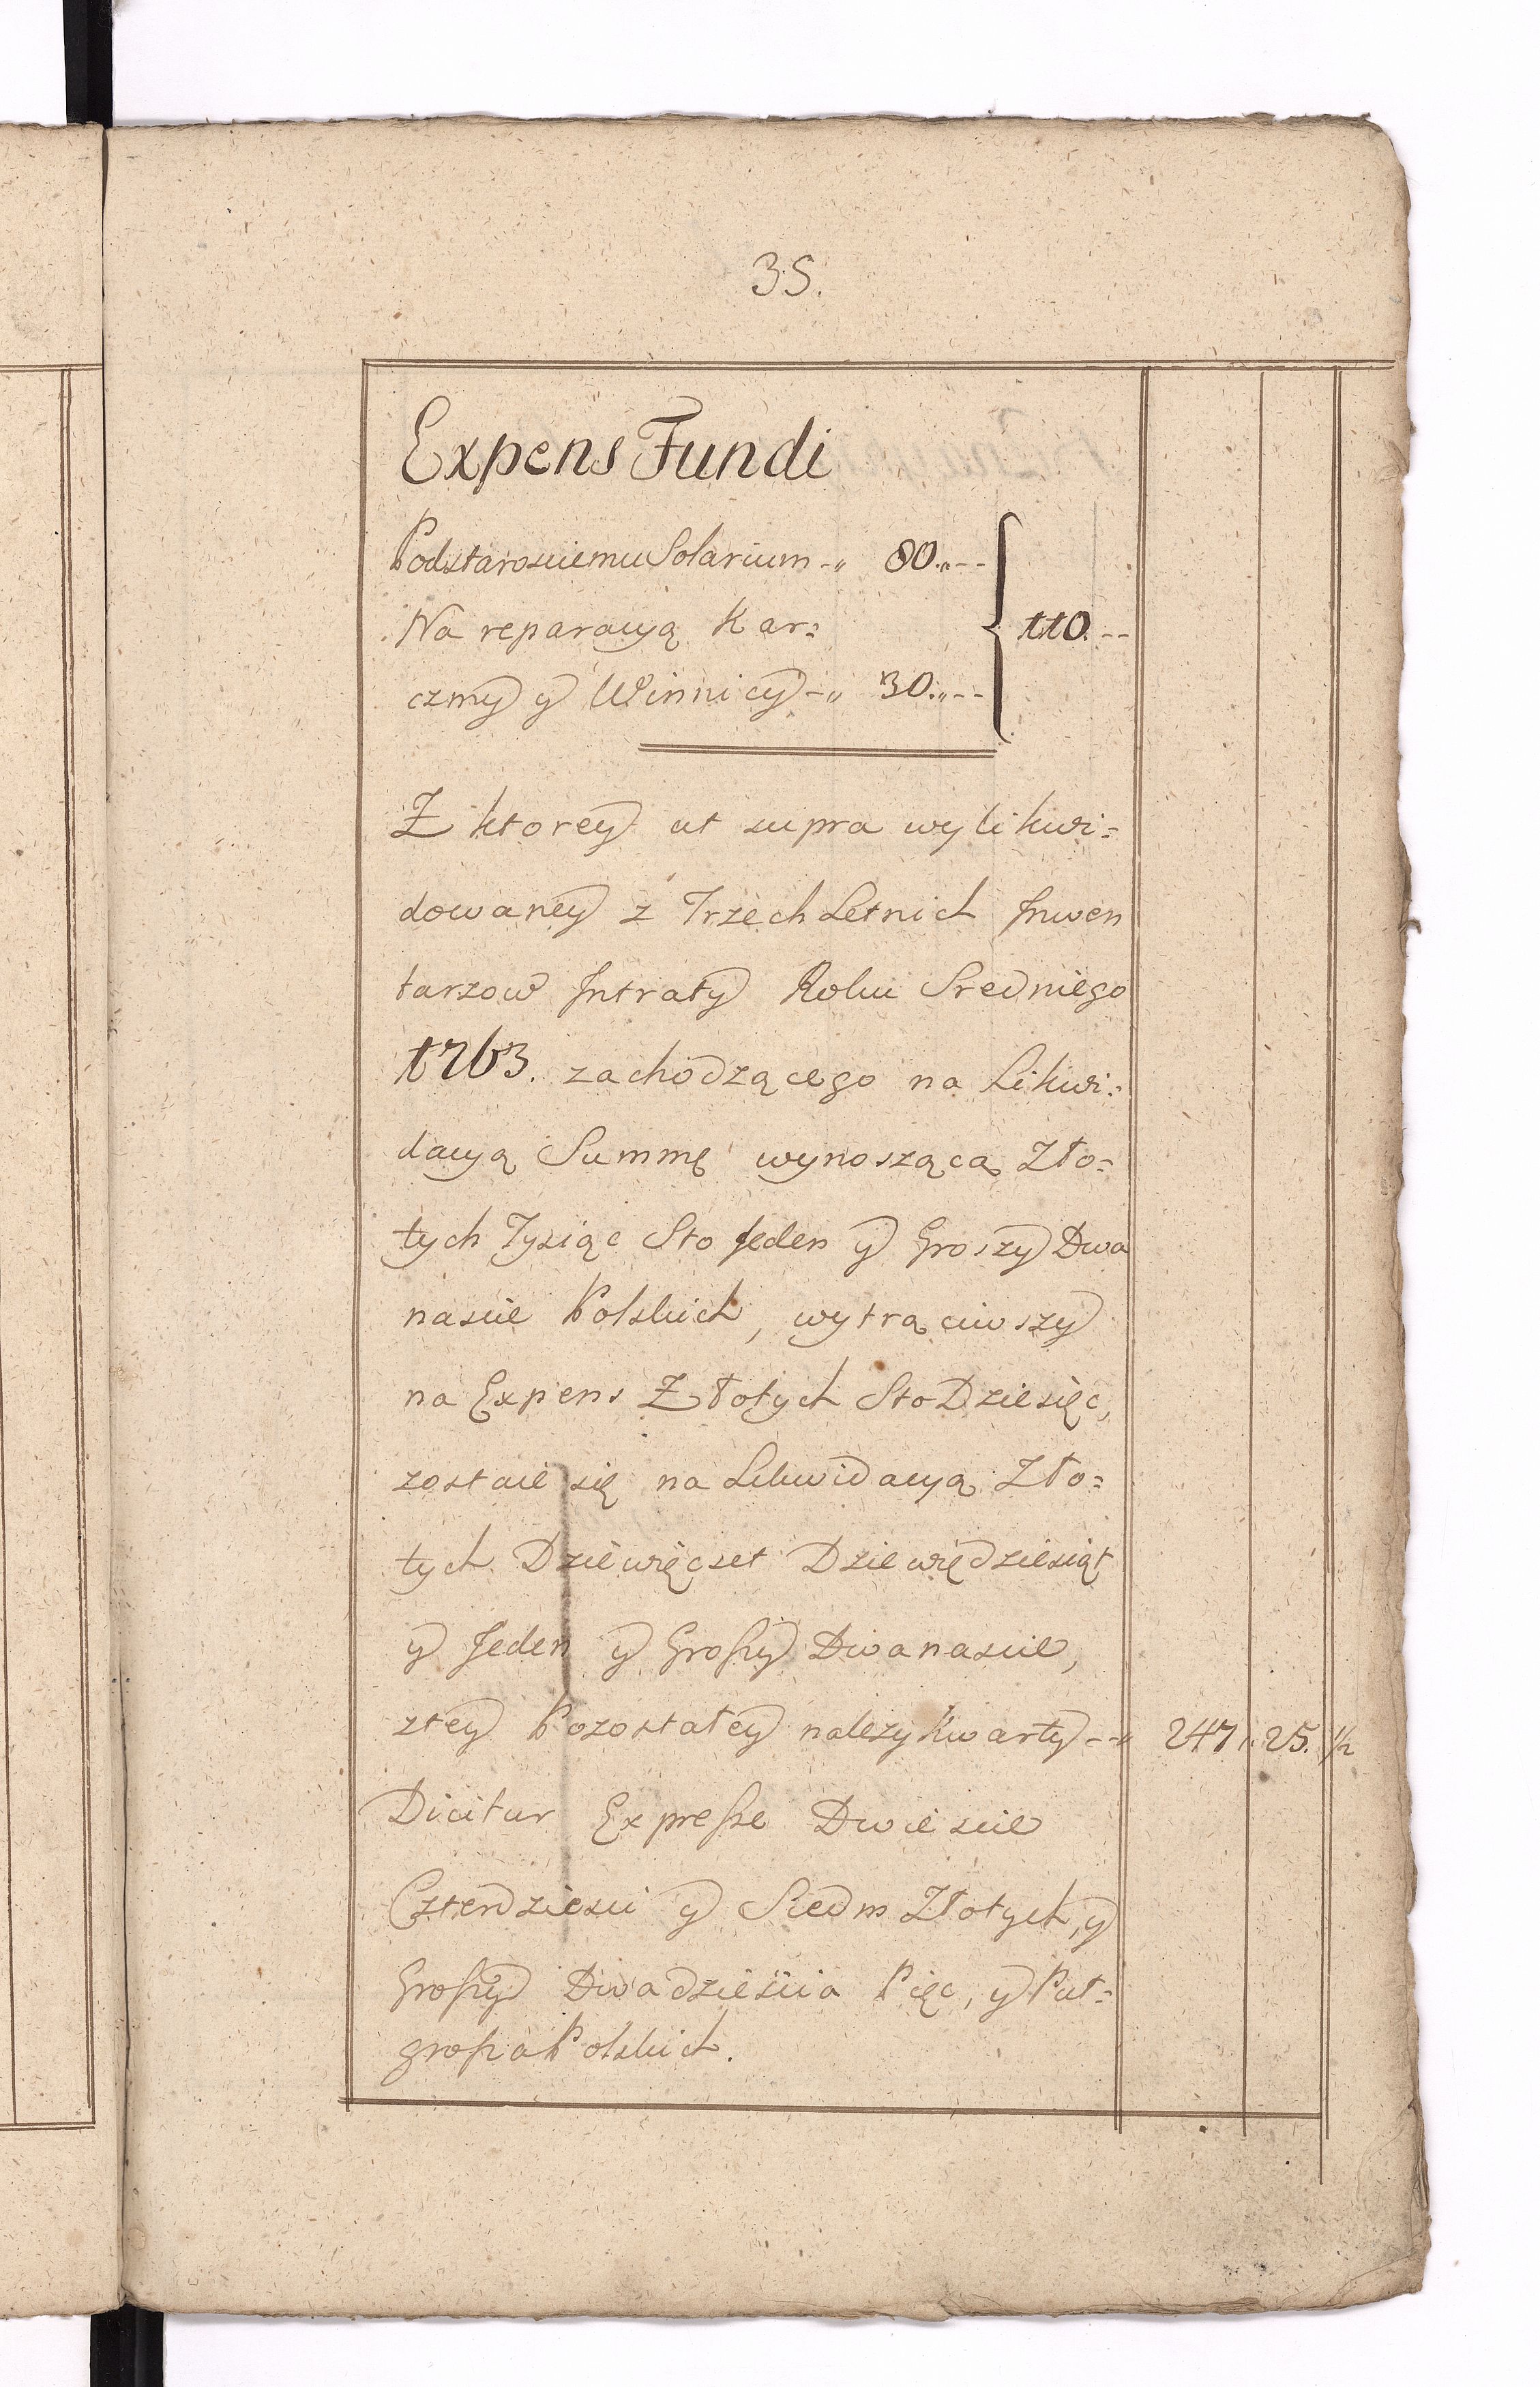 35.
Expens Fundi
Podstarosciemu Solarium -„ 80.„--
Na reparacyą Kar=
czmy y Winnicy -„ 30.„--
110.--
Z ktorey ut supra wylikwi=
dowaney z Trzech Letnich Inwen
tarzow Intraty Roku Sredniego
1763. zachodzącego na Likwi=
dacyą Summę wynoszącą Zło=
tych Tysiąc Sto Jeden y Groszy Dwa
nascie Polskich, wytrąciwszy
na Expens Złotych Sto Dziesięc,
zostaie się na Likwidacyą Zło=
tych Dziewięcset Dziewiędziesiąt
y Jeden y Groszy Dwanascie,
ztey Pozostałey nalezy Kwarty --„ 247„ 25. 1/2
Dicitur Expresse Dwiescie
Czterdziesci y Siedm Złotych, y
Groszy Dwadziescia Pięc, y Puł=
grosza Polskich.